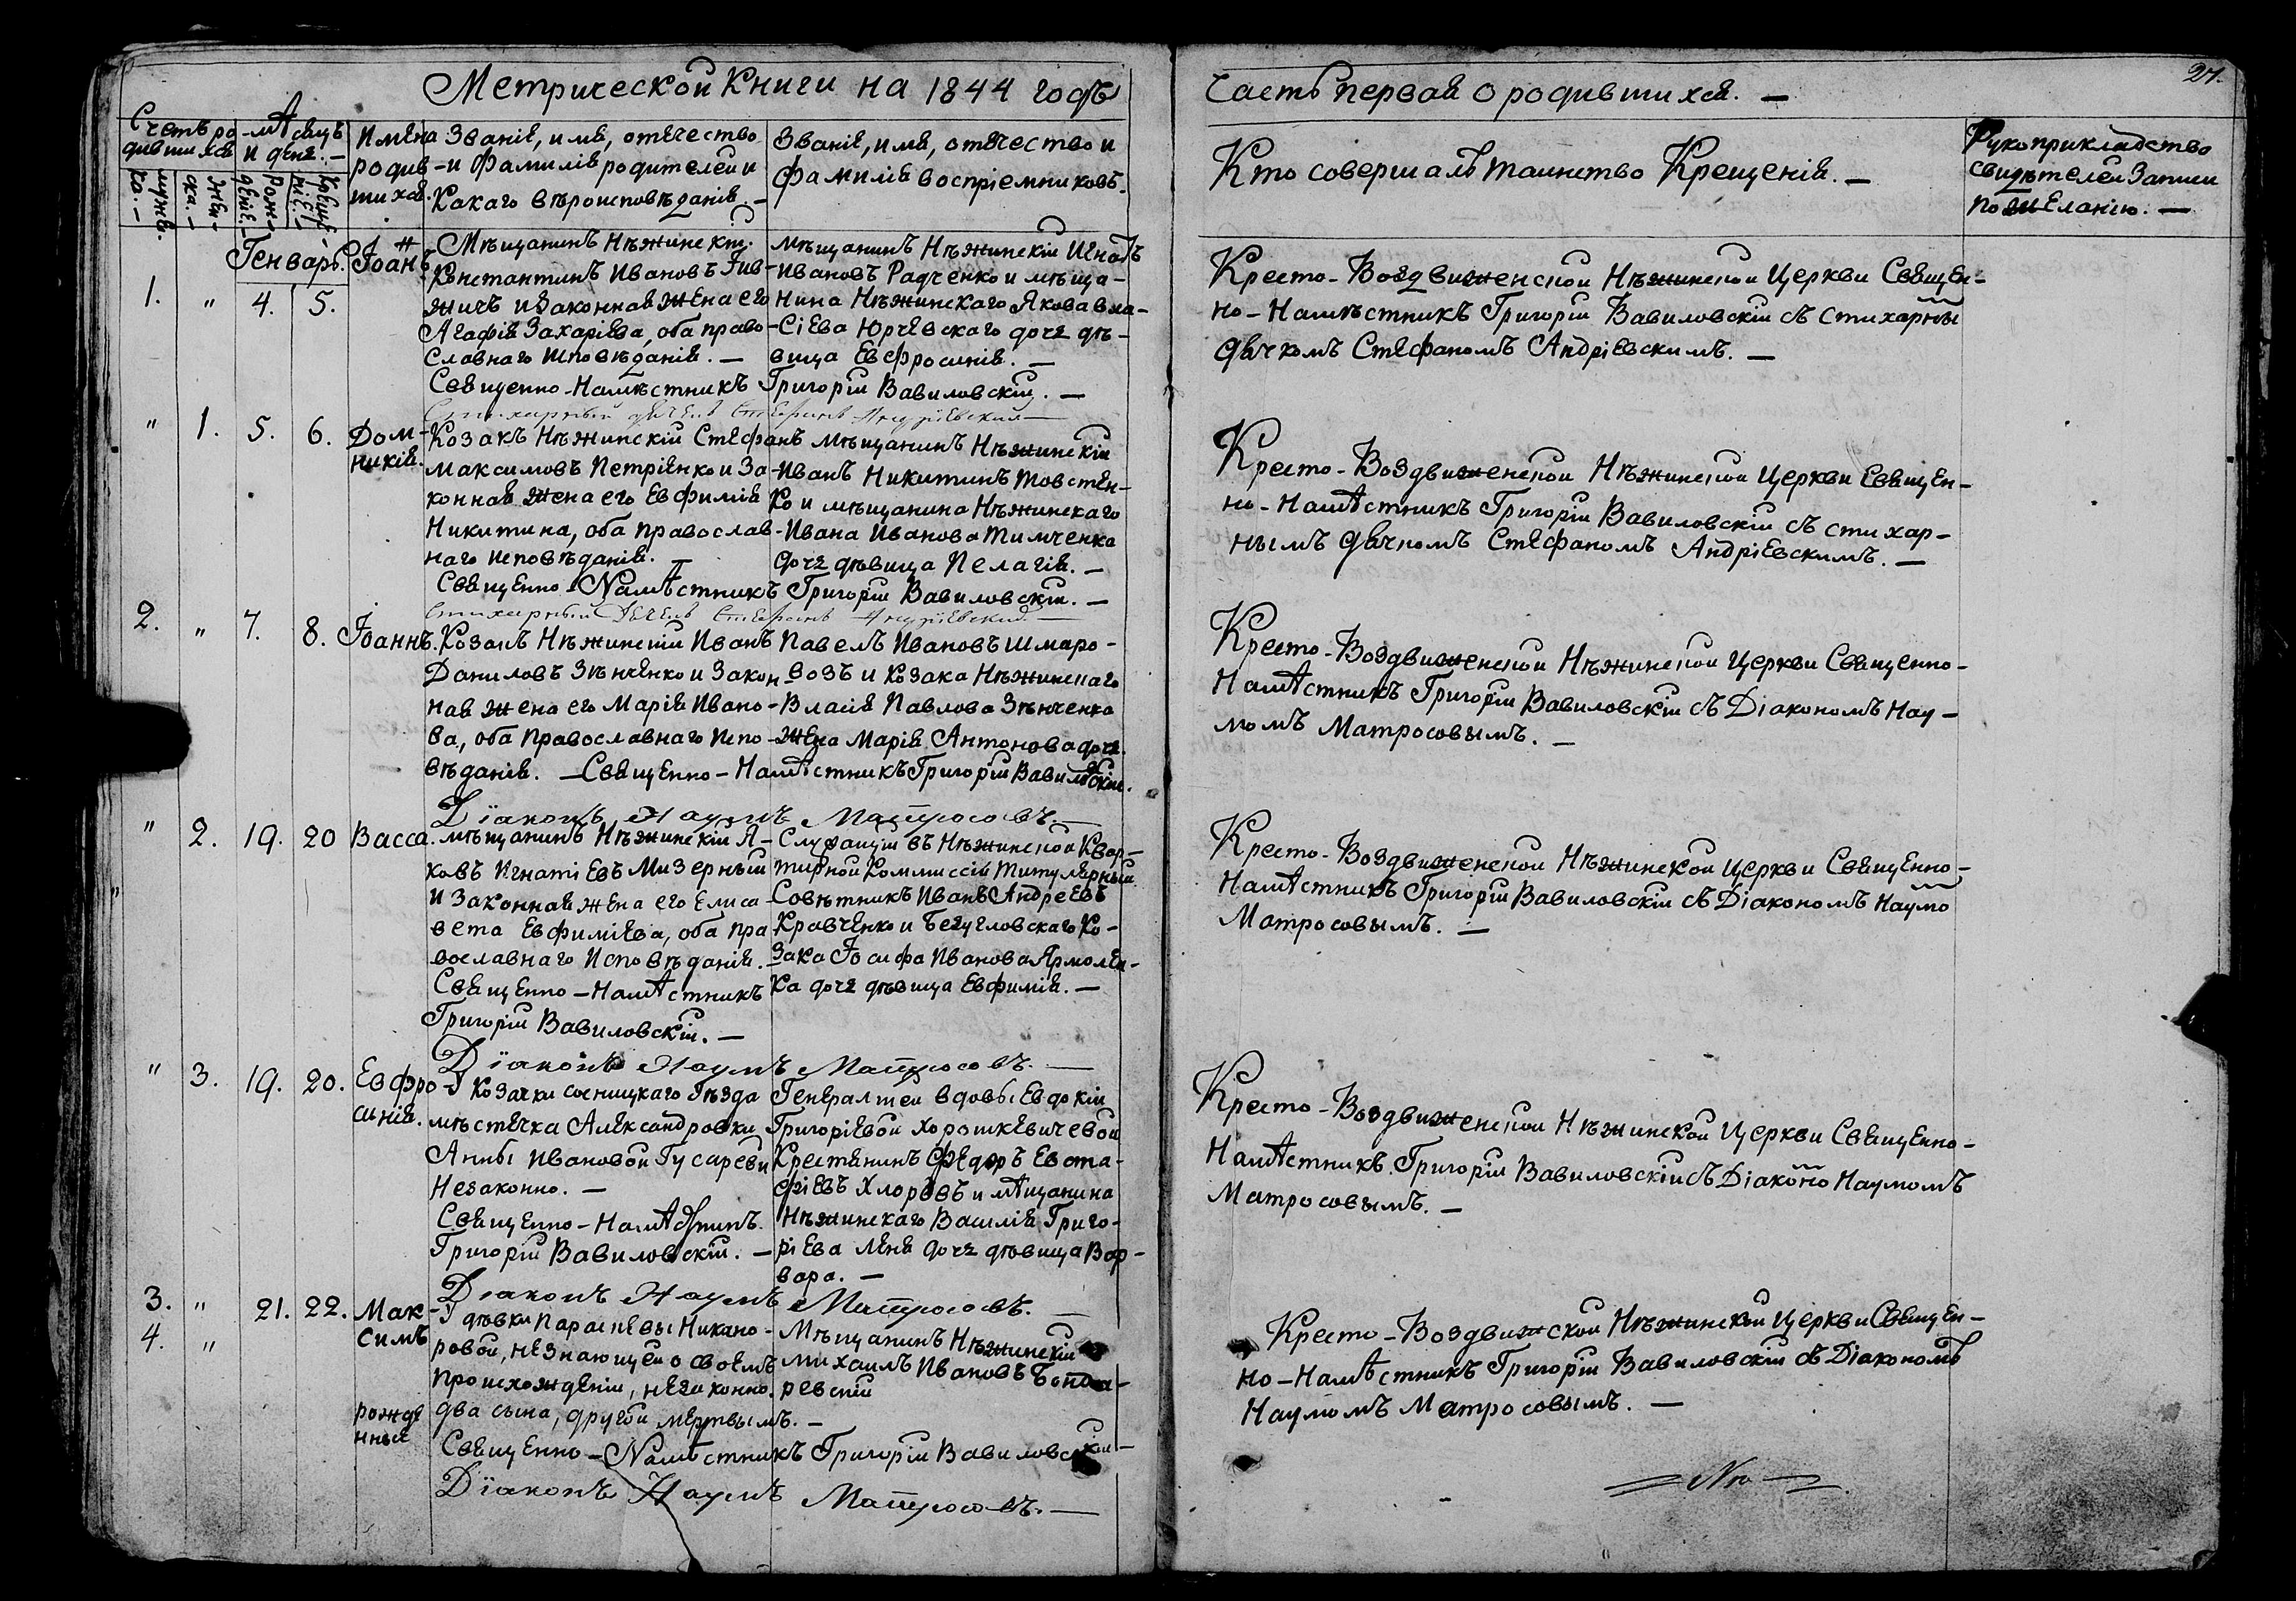 Метрической Книги на 1844 годъ
Часть первая о родившихся. —
27.
Счетъ ро
дившихся
мѣсяцъ
и день. —
Имена
родив-
шихся.
Званіе, имя, отечество
и фамилія родителей и
Какаго вѣроисповѣданія. —
Званіе, имя, отечество и
фамилія воспріемниковъ. —
Кто совершалъ таинство Крещенія. —
Рукоприкладство
свидѣтелей записи
по желанію. —
мужес-
ка. —
жен-
ска. —
Рож-
деніе. —
Креще-
ніе. —
Генварь.
1. " 4. 5.
Іоаннъ
Мѣщанинъ Нѣжинскій
Константинъ Ивановъ
жичъ и законная жена его
Агафія Захаріева, оба право-
славнаго исповѣданія. —
Священно-Намѣстникъ Григорій Вавиловскій. —
Стихарный дьячекъ Стефанъ Андріевскій —
мѣщанинъ Нѣжинскій Игнатъ
Ивановъ Радченко и мѣща-
нина Нѣжинскаго Якова Вла-
сіева Юрчевскаго дочь дѣ-
вица Евфросинія. —
Кресто-Воздвиженской Нѣжинской Церкви Священ-
но-Намѣстникъ Григорій Вавиловскій съ стихарны
дьячкомъ Стефаномъ Андріевскимъ. —
" 1. 5. 6.
Дом-
никія.
Козакъ Нѣжинскій Стефанъ
Максимовъ Петріенко и За-
конная жена его Евфимія
Никитина, оба православ-
наго исповѣданія. —
Священно-Намѣстникъ Григорій Вавиловскій. —
Стихарный Дьячекъ Стефанъ Андріевскій —
мѣщанинъ Нѣжинскій
Иванъ Никитинъ Товстен-
ко и мѣщанина Нѣжинскаго
Ивана Иванова Тимченка
дочь дѣвица Пелагія. —
Кресто-Воздвиженской Нѣжинской Церкви Священ-
но-Намѣстникъ Григорій Вавиловскій съ стихар-
нымъ дьячкомъ Стефаномъ Андріевскимъ. —
2. " 7. 8.
Іоаннъ.
Козакъ Нѣжинскій Иванъ
Даниловъ Зѣнченко и Закон
ная жена его Марія Ивано-
ва, оба Православнаго Испо-
вѣданія. — Священно-Намѣстникъ Григорій Вавиловскій.
Діаконъ Наумъ Матросовъ. —
Павелъ Ивановъ Шмаро-
возъ и Козака Нѣжинскаго
Власія Павлова Зѣнченка
Жена Марія Антонова дочь.
Кресто-Воздвиженской Нѣжинской Церкви Священно-
Намѣстникъ Григорій Вавиловскій съ Діакономъ Нау-
момъ Матросовымъ. —
" 2. 19. 20
Васса.
мѣщанинъ Нѣжинскій Я-
ковъ Игнатіевъ Мизерный
и Законная жена его Елиса
вета Евфиміева, оба пра
вославнаго Исповѣданія.
Священно-Намѣстникъ
Григорій Вавиловскій. —
Діаконъ Наумъ Матросовъ. —
Служащій въ Нѣжинской Квар-
тирной Коммиссіи Титулярный
Совѣтникъ Иванъ Андреевъ
Кравченко и Безугловскаго Ко-
зака Іосифа Иванова Ярмолен-
ка дочь дѣвица Евфимія. —
Кресто-Воздвиженской Нѣжинской Церкви Священно-
Намѣстникъ Григорій Вавиловскій съ Діакономъ Наумо
Матросовымъ. —
" 3. 19. 20.
Евфро-
синія.
У Козачки Сосницкаго Уѣзда
мѣстечка Александровки
Анны Ивановой Гусареви
Незаконно. —
Священно-Намѣстникъ.
Григорій Вавиловскій. —
Діаконъ Наумъ Матросовъ. —
Генералшеи вдовы Евдокіи
Григоріевой Хорошкевичевой
Крестянинъ Федоръ Евста-
фіевъ Хлоровъ и мѣщанина
Нѣжинскаго Василія Григо-
ріева Леня дочь дѣвица Вар-
вара. —
Кресто-Воздвиженской Нѣжинской Церкви Священно-
Намѣстникъ Григорій Вавиловскій съ Діаконо Наумомъ
Матросовымъ. —
3. " 21. 22.
4. "
Мак-
симъ
рожде
нныя
У дѣвки Параскевы Никано-
ровой, незнающей о своемъ
происхожденіи, незаконно.
два сына, другой мертвымъ. —
Священно-Намѣстникъ Григорій Вавиловскій —
Діаконъ Наумъ Матросовъ. —
Мѣщанинъ Нѣжинскій
михаилъ Ивановъ Бонда-
ревскій
Кресто-Воздвижской Нѣжинской Церкви Священ-
но-Намѣстникъ Григорій Вавиловскій съ Діакономъ
Наумомъ Матросовымъ. —